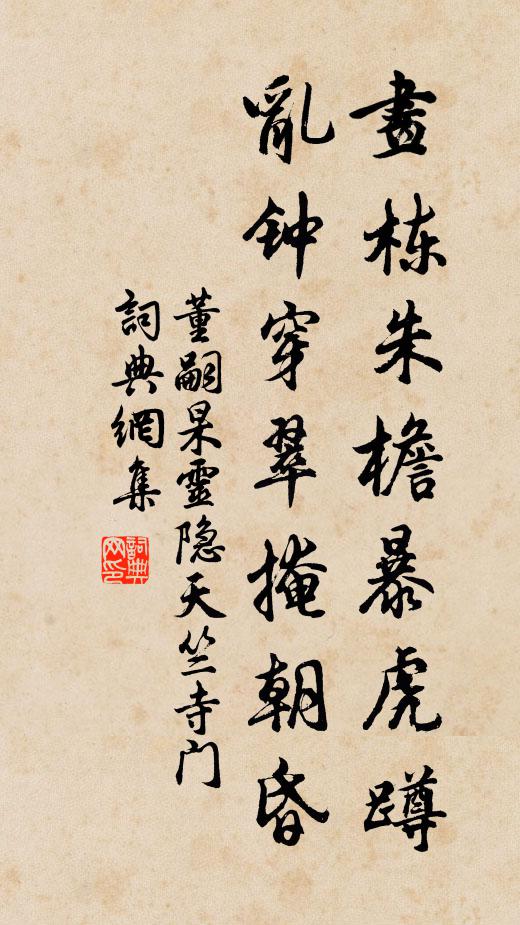 畫栋朱檐暴虎蹲
亂钟穿翠掩朝昏
董嗣杲靈隐天竺寺门
詞典網集
詞典
网印